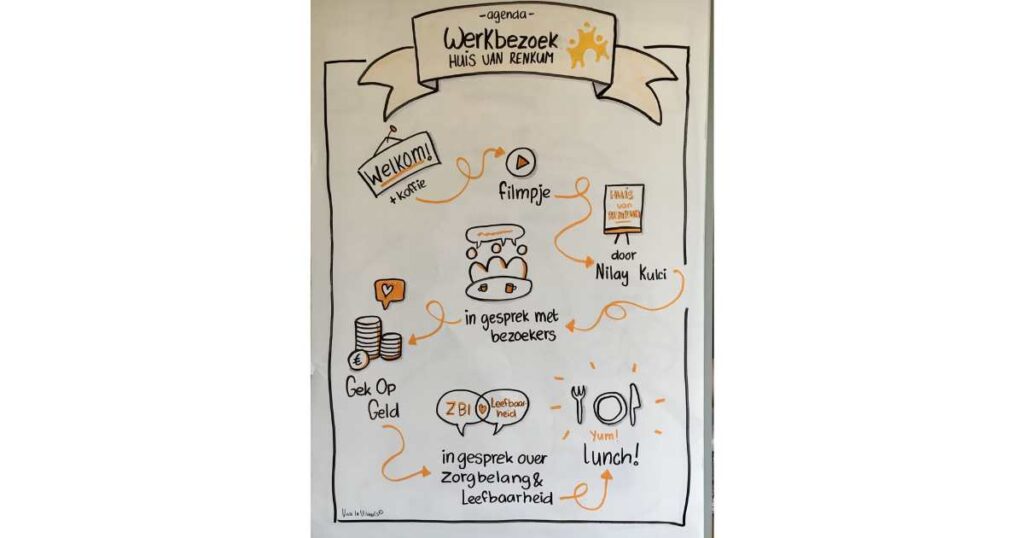 -agenda-
Werkbezoek
HUIS VAN RENKUM
Welkom!
+ koffie
filmpje
Huis
van
door
Nilay Kulci
in gesprek met
bezoekers
€
Gek Op
Geld
ZBI
Leefbaar-
heid
in gesprek over
Zorgbelang &
Leefbaarheid
Yum!
lunch!